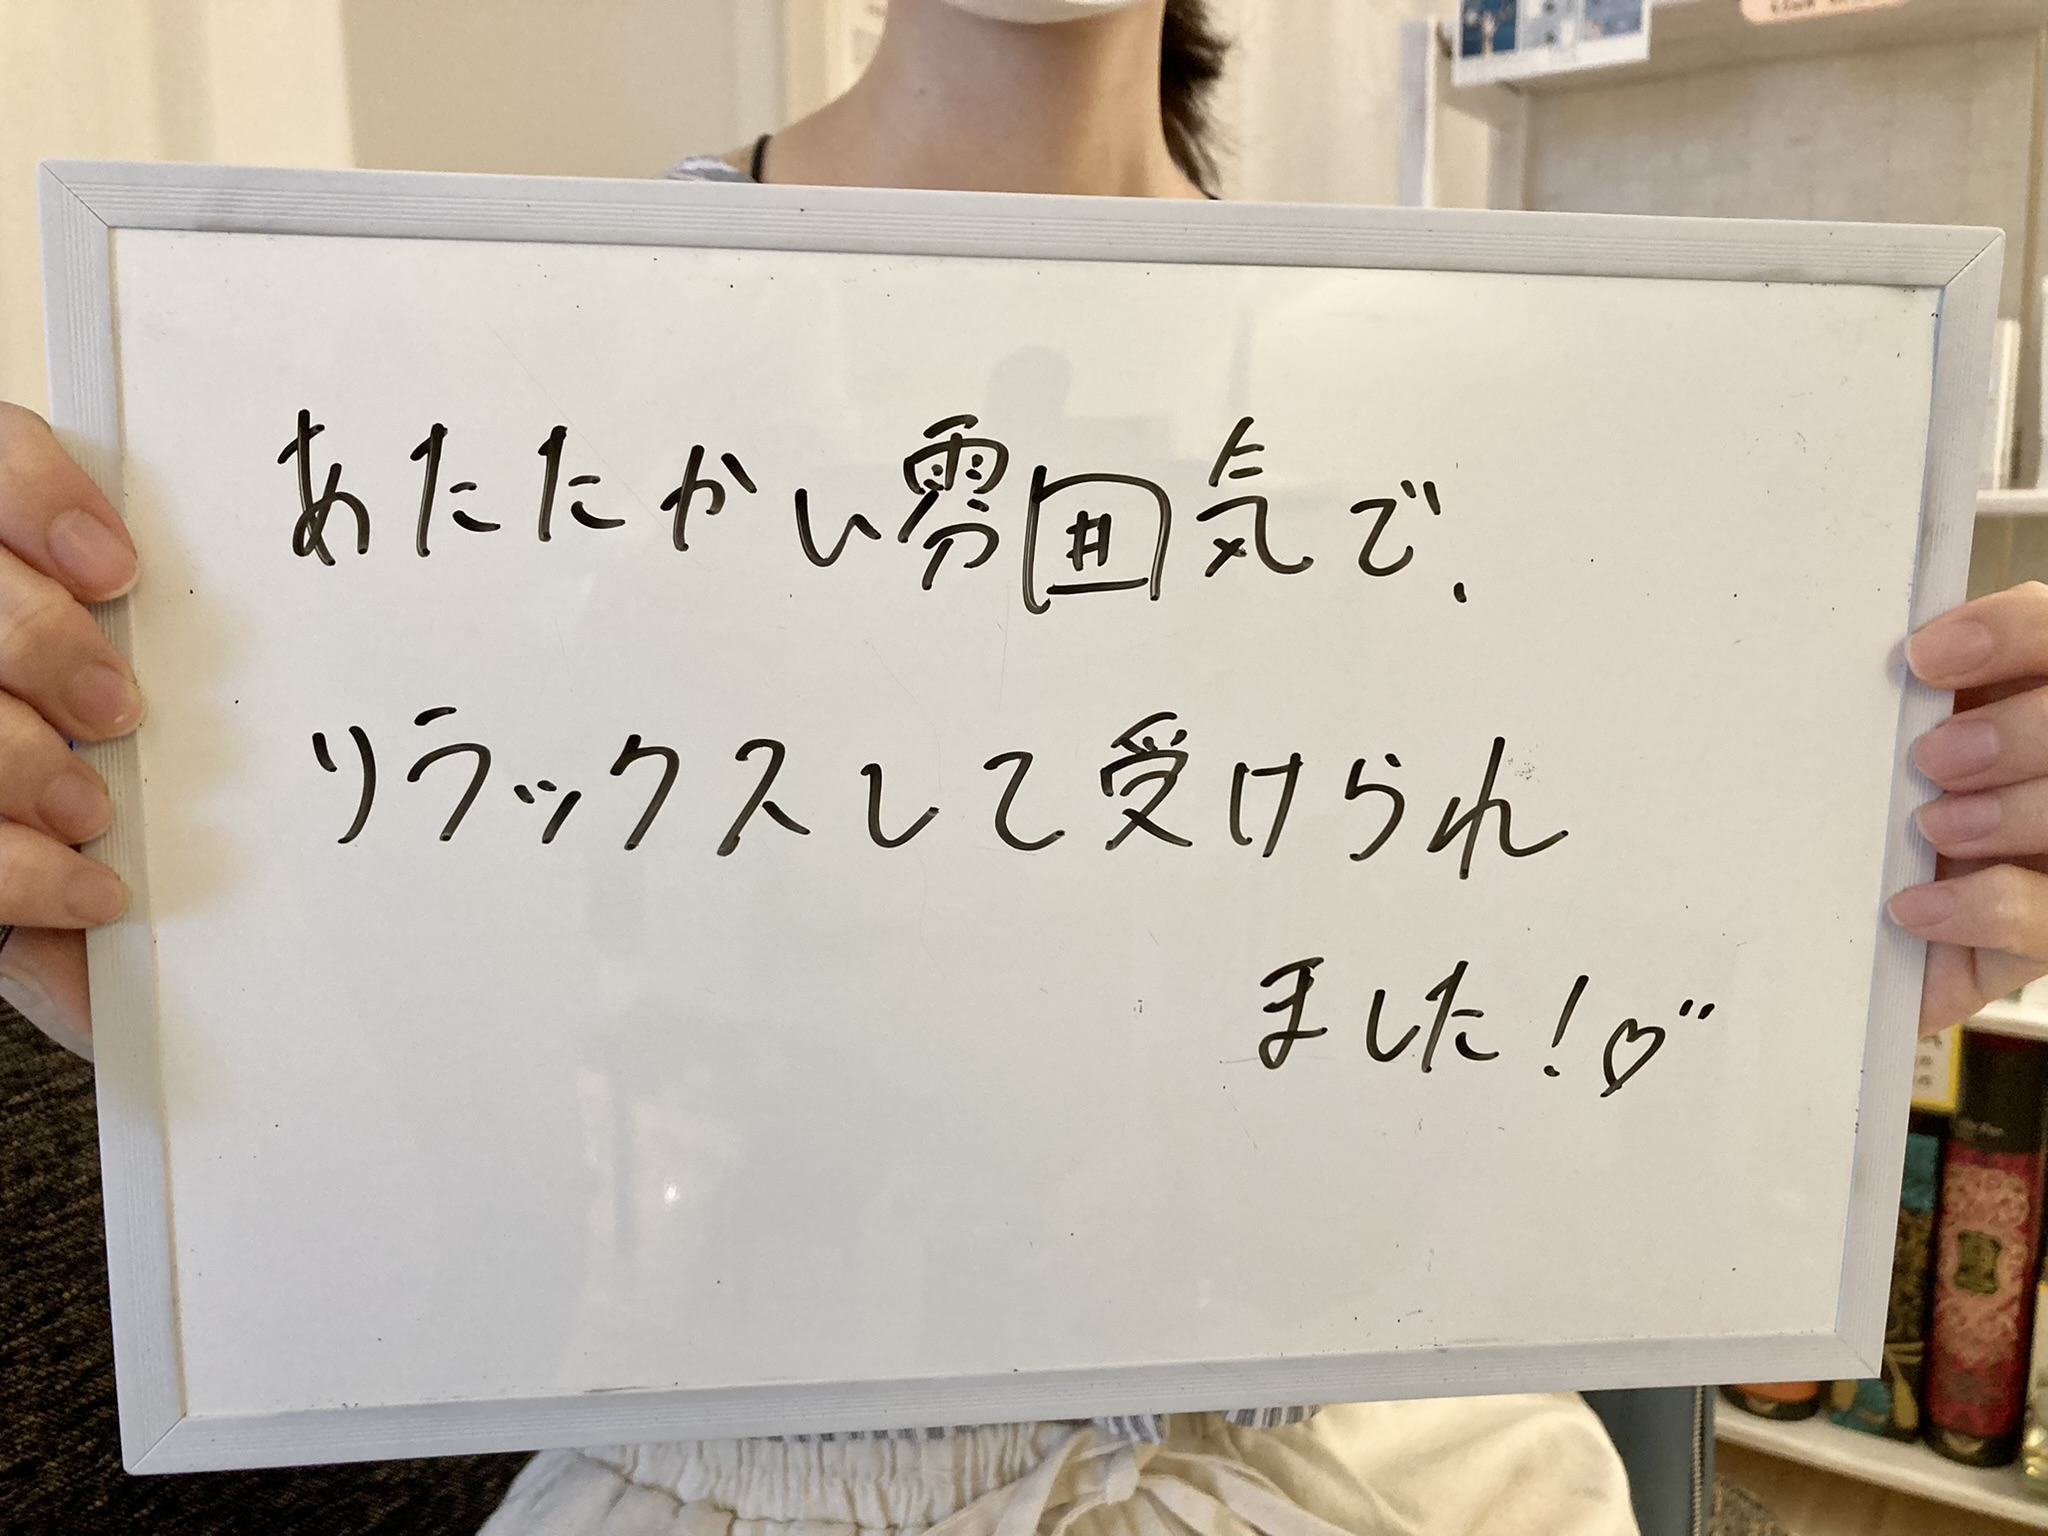 あたたかい雰囲気で、
リラックスして受けられ
ました！♡